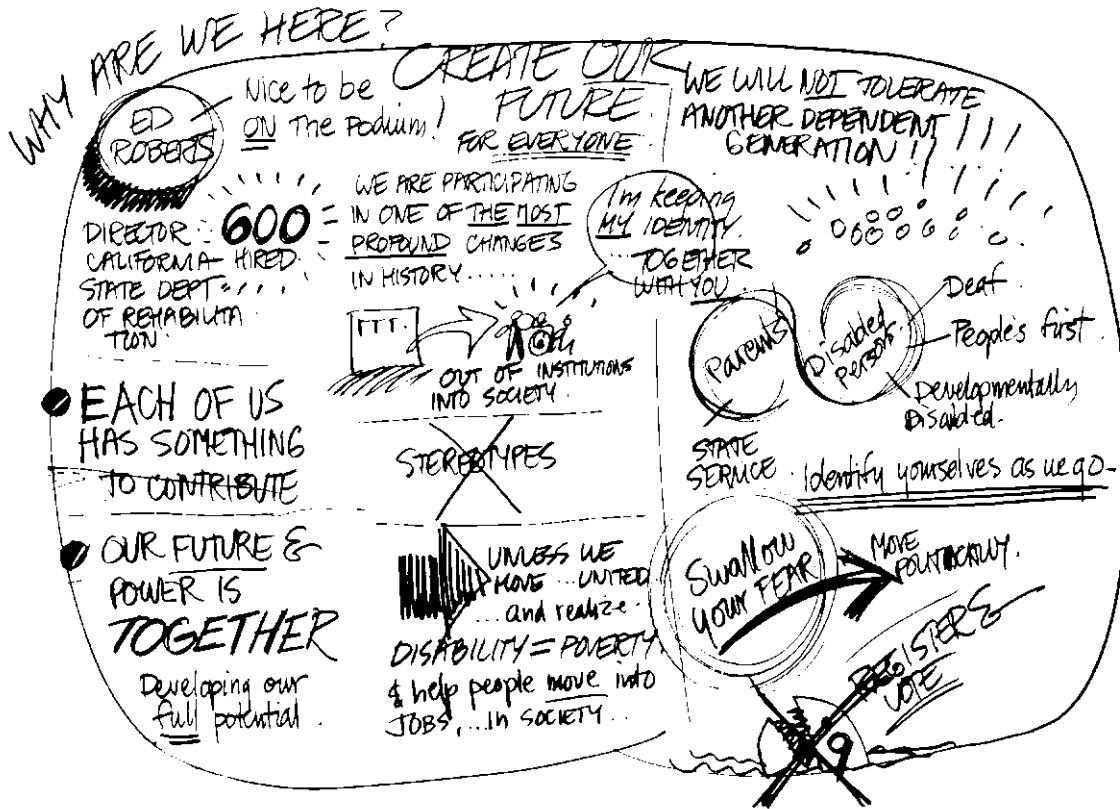 WHY ARE WE HERE?
ED
ROBERTS
Nice to be
ON The Podium!
CREATE OUR
FUTURE
FOR EVERYONE.
WE WILL NOT TOLERATE
ANOTHER DEPENDENT
GENERATION!!
DIRECTOR
CALIFORNIA
STATE DEPT
OF REHABILITA
TION
600
HIRED
WE ARE PARTICIPATING
IN ONE OF THE MOST
PROFOUND CHANGES
IN HISTORY.....
I'm keeping
MY IDENTITY.
...TOGETHER
WITH YOU.
OUT OF INSTITUTIONS
INTO SOCIETY.
Parents
Disabled
Persons
Deaf
People's first.
Developmentally
Disabled.
STATE
SERVICE.
Identify yourselves as we go-
EACH OF US
HAS SOMETHING
TO CONTRIBUTE
STEREOTYPES
OUR FUTURE &
POWER IS
TOGETHER
Developing our
full potential.
UNLESS WE
MOVE...UNITED
...and realize.
DISABILITY = POVERTY.
& help people move into
JOBS,...In SOCIETY...
Swallow
your FEAR
MOVE
POLITICALLY.
REGISTER &
VOTE